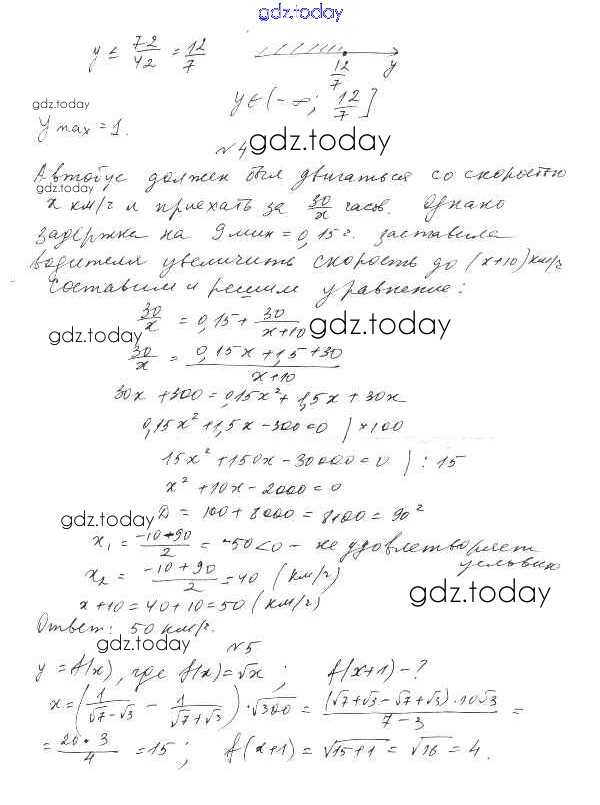 gdz.today
y ≤ 72/42 = 12/7
12/7 y
gdz.today
y ∈ (-∞; 12/7]
y max = 1.
№4
gdz.today
Автобус должен был двигаться со скоростью
gdz.today
x км/ч и приехать за 30/x часов. Однако
задержка на 9 мин = 0,15 ч. заставила
водителя увеличить скорость до (x+10) км/ч
Составим и решим уравнение:
30/x = 0,15 + 30/(x+10)
gdz.today
gdz.today
30/x = (0,15x+1,5+30)/(x+10)
30x + 300 = 0,15x² + 1,5x + 30x
0,15x² + 1,5x - 300 = 0 | ×100
15x² + 150x - 30000 = 0 | : 15
x² + 10x - 2000 = 0
gdz.today
D = 100 + 8000 = 8100 = 90²
x₁ = (-10+90)/2 = -50 < 0 - не удовлетворяет
условию
x₂ = (-10+90)/2 = 40 (км/ч)
gdz.today
x+10 = 40+10 = 50 (км/ч)
Ответ: 50 км/ч.
gdz.today
№5
y = f(x), где f(x) = √x ; f(x+1) - ?
x = (1/(√7-√3) - 1/(√7+√3)) · √300 = ((√7+√3-√7+√3)·10√3)/(7-3) =
= (20·3)/4 = 15 ; f(x+1) = √(15+1) = √16 = 4.